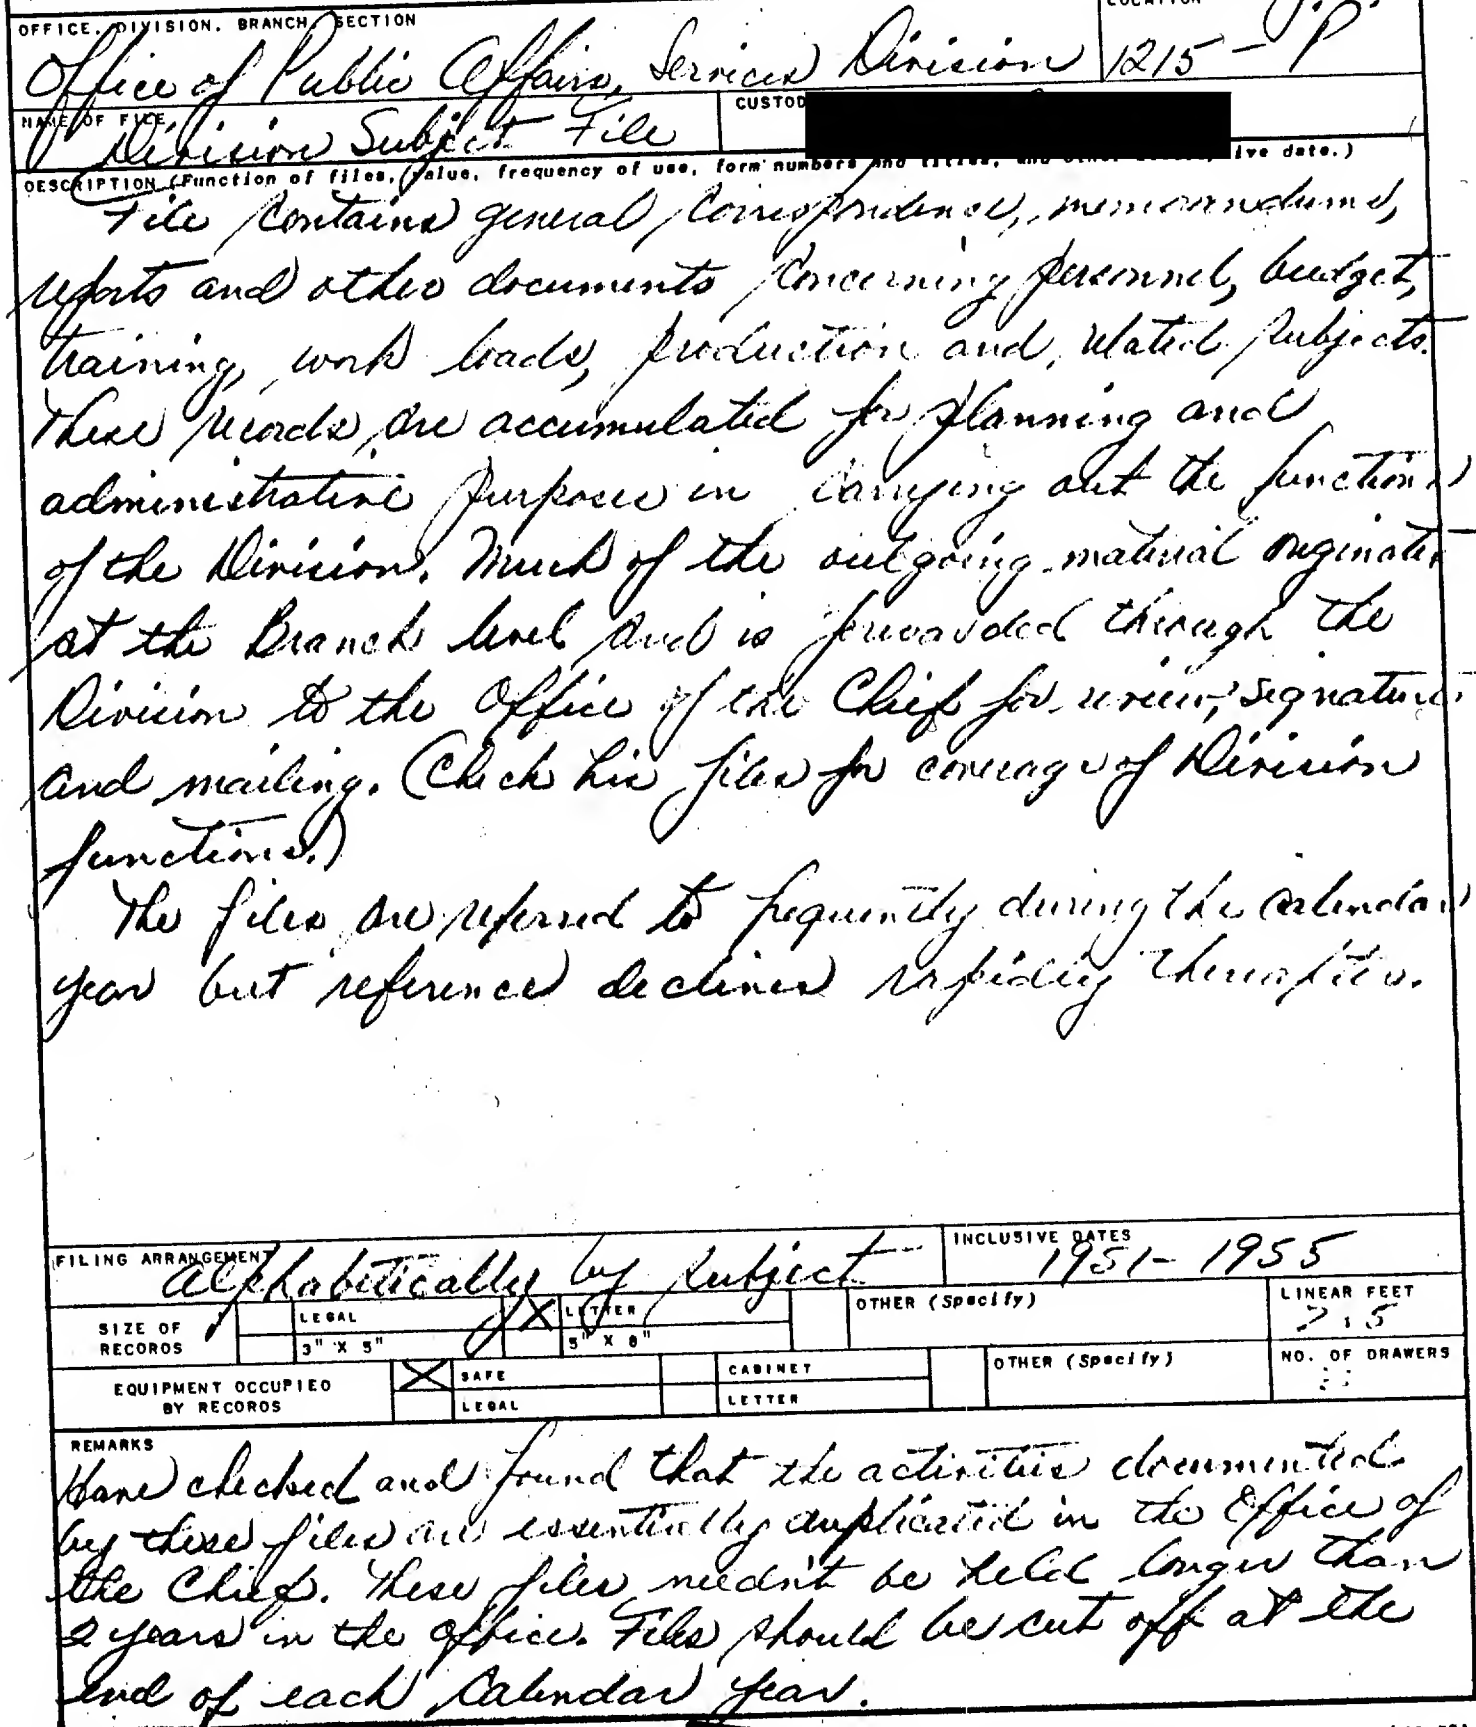 OFFICE, DIVISION, BRANCH, SECTION
LOCATION
Office of Public Affairs, Services Division
1215 - P
NAME OF FILE
CUSTOD
Division Subject File
DESCRIPTION (Function of files, value, frequency of use, form numbers and titles, and other ive date.)
File contains general correspondence, memorandums,
reports and other documents concerning personnel, budget,
training, work loads, production and related subjects.
These records are accumulated for planning and
administrative purposes in carrying out the functions
of the Division. Much of the outgoing material originates
at the Branch level and is forwarded through the
Division to the Office of the Chief for review, signature
and mailing. (Check his files for coverage of Division
functions.)
The files are referred to frequently during the calendar
year but reference declines rapidly thereafter.
FILING ARRANGEMENT
INCLUSIVE DATES
Alphabetically by subject
1951 - 1955
SIZE OF RECORDS
LEGAL
X LETTER
OTHER (Specify)
LINEAR FEET
3" X 5"
5" X 8"
EQUIPMENT OCCUPIED BY RECORDS
X SAFE
CABINET
OTHER (Specify)
NO. OF DRAWERS
LEGAL
LETTER
REMARKS
Have checked and found that the activities documented
by these files are essentially duplicated in the Office of
the Chief. These files needn't be held longer than
2 years in the office. Files should be cut off at the
end of each Calendar year.